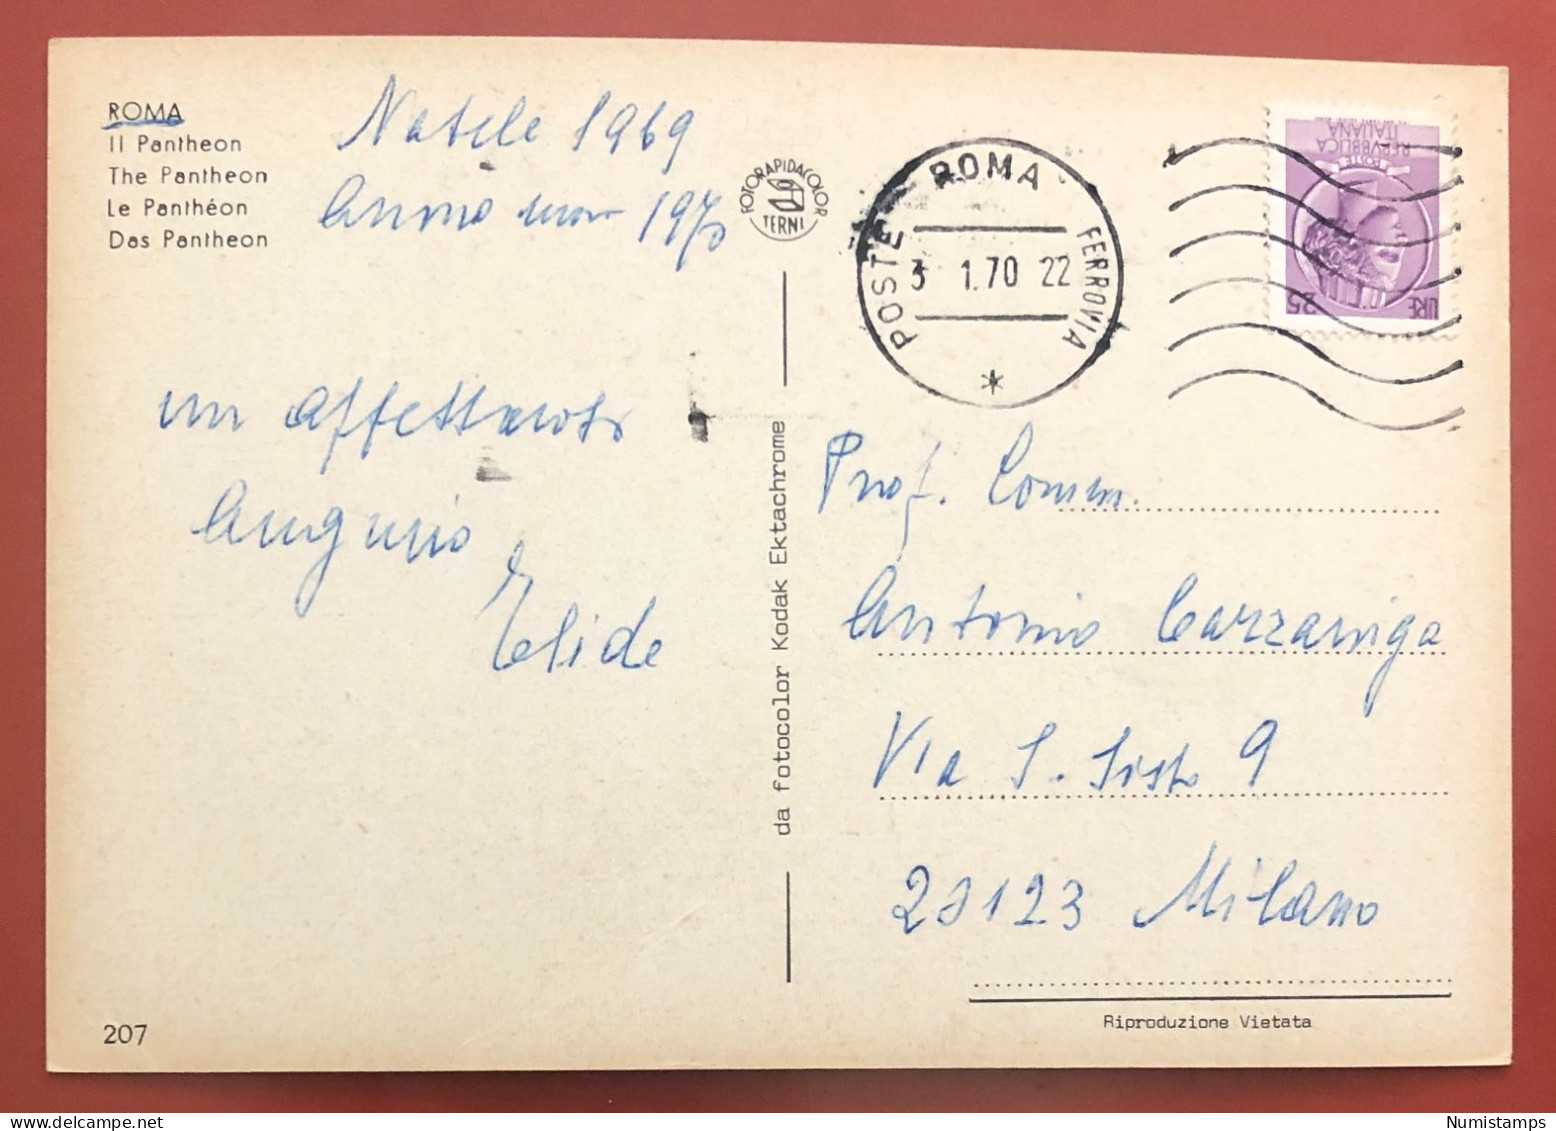 ROMA
Il Pantheon
The Pantheon
Le Panthéon
Das Pantheon
Natale 1969
Anno nuovo 1970
un affettuoso
Augurio
Elide
207
FOTORAPIDACOLOR
TERNI
da fotocolor Kodak Ektachrome
POSTE ROMA FERROVIA
3 1.70 22
REPVBBLICA
ITALIANA
POSTE
LIRE 25
Prof. Comm.
Antonio Carzaniga
Via S. Sisto 9
20123 Milano
Riproduzione Vietata
Numistamps
delcampe.net